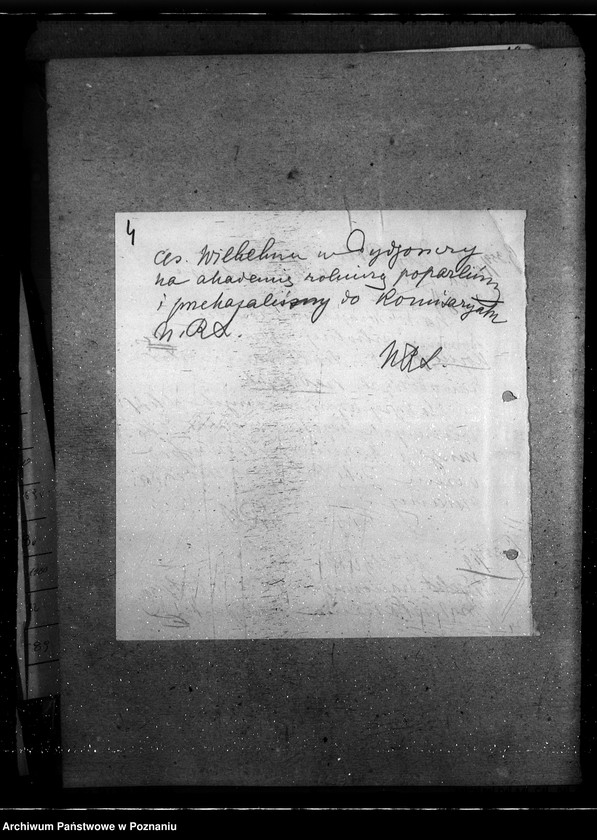 4
ces. Wilhelma w Bydgoszczy
na akademię rolniczą poparliśmy
i przekazaliśmy do Komisaryatu
N. R. L.
NRL.
Archiwum Państwowe w Poznaniu